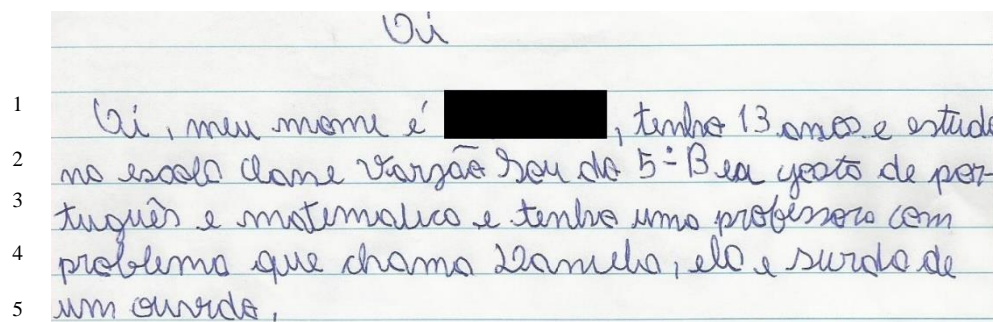 Oi
1 Oi, meu nome é , tenho 13 anos e estudo
2 na escola Classe Varzão Sou do 5º B eu gosto de por-
3 tuguês e matematica e tenho uma professora com
4 problema que chama Daniela, ela e surda de
5 um ouvido,